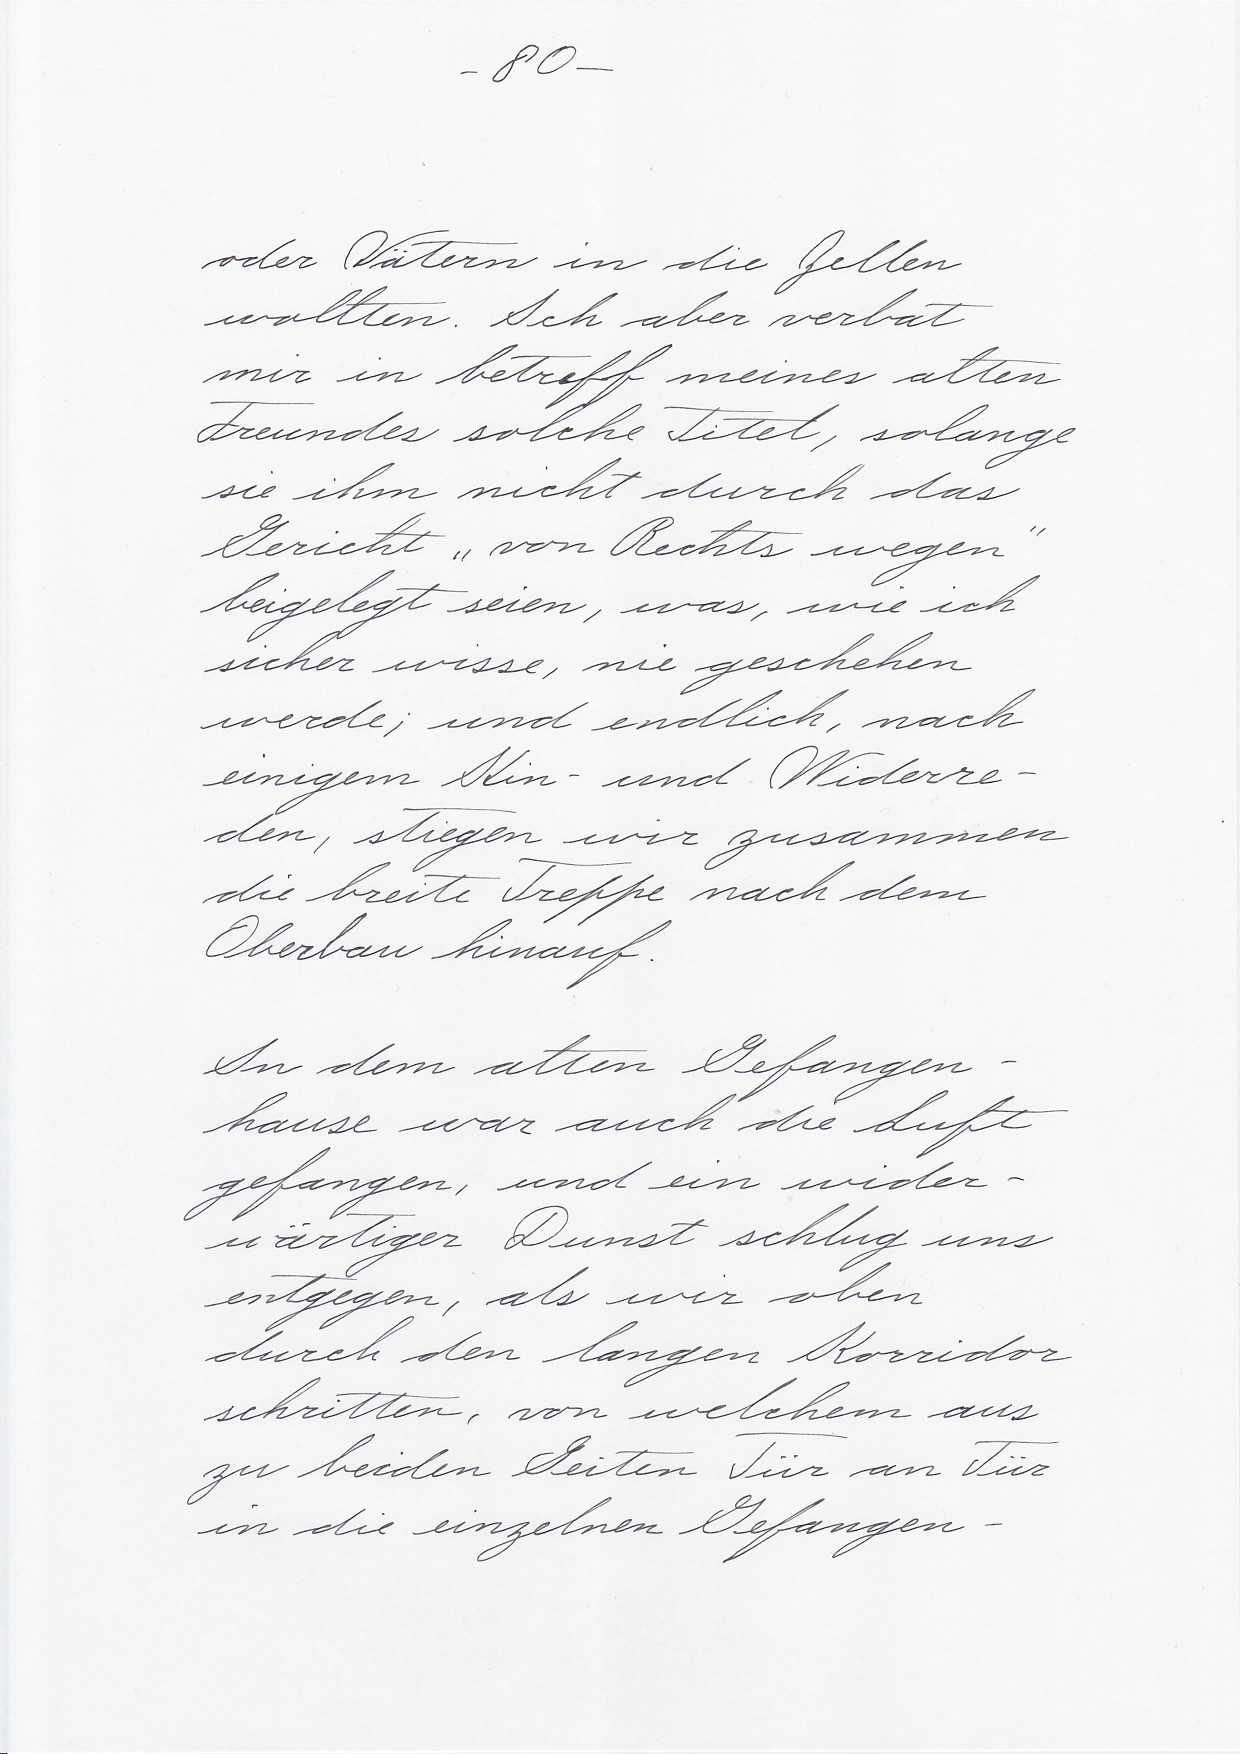 - 80 -
oder Vätern in die Zellen
wollten. Ich aber verbat
mir in betreff meines alten
Freundes solche Titel, solange
sie ihm nicht durch das
Gericht „von Rechts wegen"
beigelegt seien, was, wie ich
sicher wisse, nie geschehen
werde; und endlich, nach
einigem Hin- und Widerre-
den, stiegen wir zusammen
die breite Treppe nach dem
Oberbau hinauf.
In dem alten Gefangen-
hause war auch die Luft
gefangen, und ein wider-
wärtiger Dunst schlug uns
entgegen, als wir oben
durch den langen Korridor
schritten, von welchem aus
zu beiden Seiten Tür an Tür
in die einzelnen Gefangen-